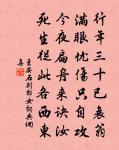 行年三十已衰翁
满眼忧伤只自攻
今夜扁舟来诀汝
死生从此各西东
王安石别鄞女词典网
集